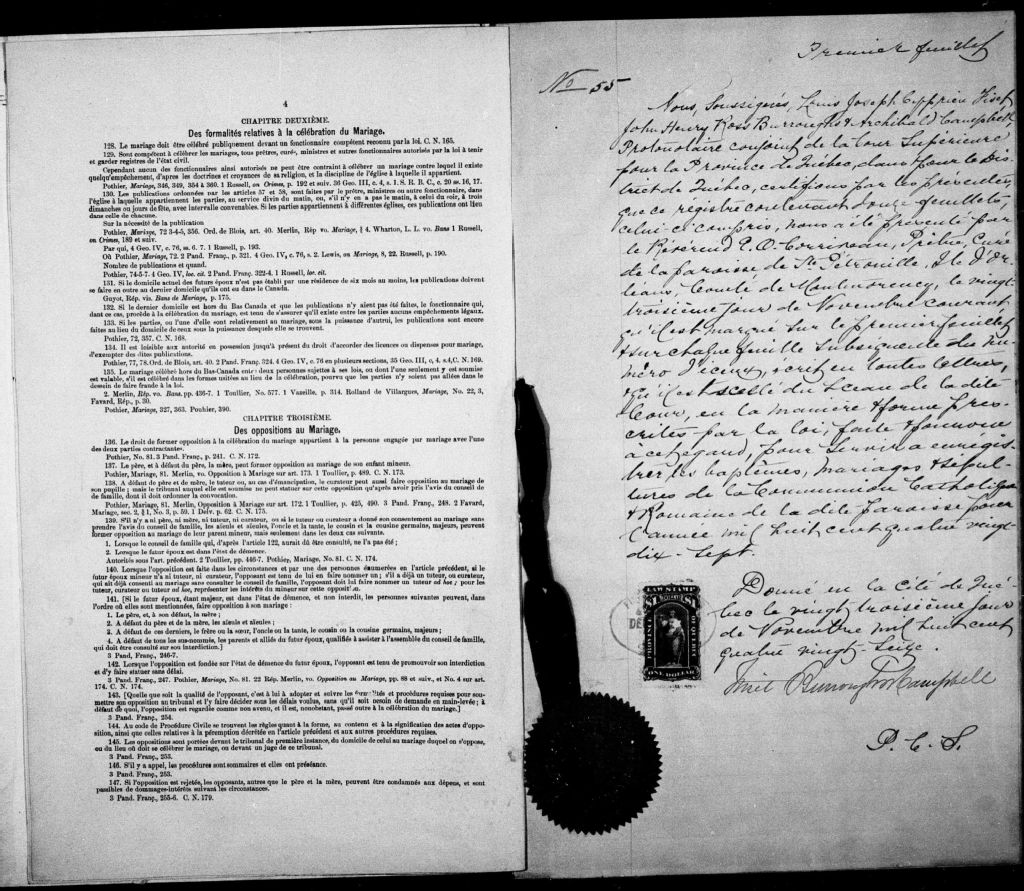 4
CHAPITRE DEUXIÈME.
Des formalités relatives à la célébration du Mariage.
128. Le mariage doit être célébré publiquement devant un fonctionnaire compétent reconnu par la loi. C. N. 165.
129. Sont compétents à célébrer les mariages, tous prêtres, curé, ministres et autres fonctionnaires autorisés par la loi à tenir
et garder registres de l'état civil.
Cependant aucun des fonctionnaires ainsi autorisés ne peut être contraint à célébrer un mariage contre lequel il existe
quelqu'empêchement, d'après les doctrines et croyances de sa religion, et la discipline de l'église à laquelle il appartient.
Pothier, Mariage, 346, 349, 354 à 360. 1 Russell, on Crimes, p. 192 et suiv. 36 Geo. III, c. 4, s. 1. S. R. B. C., c. 20 ss. 16, 17.
130. Les publications ordonnées par les articles 57 et 58, sont faites par le prêtre, ministre ou autre fonctionnaire, dans
l'église à laquelle appartiennent les parties, au service divin du matin, ou, s'il n'y en a pas le matin, à celui du soir, à trois
dimanches ou jours de fête, avec intervalle convenables. Si les parties appartiennent à différentes églises, ces publications ont lieu
dans celle de chacune.
Sur la nécessité de la publication
Pothier, Mariage, 72 3-4-5, 356. Ord. de Blois, art. 40. Merlin, Rép vo. Mariage, § 4. Wharton, L. L. vo. Bans 1 Russell,
on Crimes, 189 et suiv.
Par qui, 4 Geo. IV, c. 76, ss. 6. 7. 1 Russell, p. 193.
Où Pothier, Mariage, 72. 2 Pand. Franç., p. 321. 4 Geo. IV, c. 76, s. 2. Lewis, on Mariage, 8, 22. Russell, p. 190.
Nombre de publications et quand.
Pothier, 74-5-7. 4 Geo. IV, loc. cit. 2 Pand. Franç. 322-4. 1 Russell, loc. cit.
131. Si le domicile actuel des futurs époux n'est pas établi par une résidence de six mois au moins, les publications doivent
se faire en outre au dernier domicile qu'ils ont eu dans le Canada.
Guyot, Rép. vis. Bans de Mariage, p. 175.
132. Si le dernier domicile est hors du Bas Canada et que les publications n'y aient pas été faites, le fonctionnaire qui,
dant ce cas, procède à la célébration du mariage, est tenu de s'assurer qu'il existe entre les parties aucuns empêchements légaux.
133. Si les parties, ou l'une d'elle sont relativement au mariage, sous la puissance d'autrui, les publications sont encore
faites au lieu du domicile de ceux sous la puissance desquels elle se trouvent.
Pothier, 72, 357. C. N. 168.
134. Il est loisible aux autorité en possession jusqu'à présent du droit d'accorder des licences ou dispenses pour mariage,
d'exempter des dites publications.
Pothier, 77, 78. Ord. de Blois, art. 40. 2 Pand Franç. 324. 4 Geo. IV, c. 76 en plusieurs sections, 35 Geo. III, c. 4, s.4, C. N. 169.
135. Le mariage célébré hors du Bas-Canada entre deux personnes sujettes à ses lois, ou dont l'une seulement y est soumise
est valable, s'il est célébré dans les formes usitées au lieu de la célébration, pourvu que les parties n'y soient pas allées dans le
dessein de faire fraude à la loi.
2. Merlin, Rép. vo. Bans, pp. 436-7. 1 Toullier, No. 577. 1 Vazeille, p. 314. Rolland de Villargues, Mariage, No. 22, 3,
Favard, Rép., p. 30.
Pothier, Mariage, 327, 363. Pouhier, 390.
CHAPITRE TROISIÈME.
Des oppositions au Mariage.
136. Le droit de former opposition à la célébration du mariage appartient à la personne engagée par mariage avec l'une
des deux parties contractantes.
Pothier, No. 81. 3 Pand. Franç., p. 241. C. N. 172.
137. Le père, et à défaut du père, la mère, peut former opposition au mariage de son enfant mineur.
Pothier, Mariage, 81. Merlin, vo. Opposition à Mariage sur art. 173. 1 Toullier, p. 489. C. N. 173.
138. A défaut de père et de mère, le tuteur ou, au cas d'émancipation, le curateur peut aussi faire opposition au mariage de
son pupille; mais le tribunal auquel elle est soumise ne peut statuer sur cette opposition qu'après avoir pris l'avis du conseil de
de famille, dont il doit ordonner la convocation.
Pothier, Mariage, 81. Merlin, Opposition à Mariage sur art. 172. 1 Toullier, p. 425, 490. 3 Pand. Franç., 248. 2 Favard,
Mariage, sec. 2, § 1, No. 3, p. 59. 1 Delv. p. 62. C. N. 175.
139. S'il n'y a ni père, ni mère, ni tuteur, ni curateur, ou si le tuteur ou curateur a donné son consentement au mariage sans
prendre l'avis du conseil de famille, les aïeuls et aïeules, l'oncle et la tante, le cousin et la cousine germains, majeurs, peuvent
former opposition au mariage de leur parent mineur, mais seulement dans les deux cas suivants.
1. Lorsque le conseil de famille qui, d'après l'article 122, aurait dû être consulté, ne l'a pas été;
2. Lorsque le futur époux est dans l'état de démence.
Autorités sous l'art. précédent. 2 Toullier, pp. 446-7. Pothier, Mariage, No. 81. C. N. 174.
140. Lorsque l'opposition est faite dans les circonstances et par une des personnes énumérées en l'article précédent, si le
futur époux mineur n'a ni tuteur, ni curateur, l'opposant est tenu de lui en faire nommer un; s'il a déjà un tuteur, ou curateur,
qui ait déjà consenti au mariage sans consulter le conseil de famille, l'opposant doit lui faire nommer un tuteur ad hoc; pour les
tuteur, curateur ou tuteur ad hoc, représenter les intérêts du mineur sur cette opposition.
141. [Si le futur époux, étant majeur, est dans l'état de démence, et non interdit, les personnes suivantes peuvent, dans
l'ordre où elles sont mentionnées, faire opposition à son mariage:
1. Le père, et, à son défaut, la mère;
2. A défaut du père et de la mère, les aïeuls et aïeules;
3. A défaut de ces derniers, le frère ou la sœur, l'oncle ou la tante, le cousin ou la cousine germains, majeurs;
4. A défaut de tous les sus-nommés, les parents et alliés du futur époux, qualifiés à assister à l'assemblée du conseil de famille,
qui doit être consulté sur son interdiction.]
3 Pand, Franç., 246-7.
142. Lorsque l'opposition est fondée sur l'état de démence du futur époux, l'opposant est tenu de promouvoir son interdiction
et d'y faire statuer sans délai.
3 Pand. Franç., 247. Pothier, Mariage, No. 81. 22 Rép. Merlin, vo. Opposition au Mariage, pp. 88 et suiv., et No. 4 sur art.
174. C. N. 174.
143. [Quelle que soit la qualité de l'opposant, c'est à lui à adopter et suivre les formalités et procédures requises pour sou-
mettre son opposition au tribunal et l'y faire décider sous les délais voulus, sans qu'il soit besoin de demande en main-levée; à
défaut de quoi, l'opposition est regardée comme non avenu, et il est, nonobstant, passé outre à la célébration du mariage.]
3 Pand. Franç., 254.
144. Au code de Procédure Civile se trouvent les règles quant à la forme, au contenu et à la signification des actes d'oppo-
sition, ainsi que celles relatives à la péremption décrétée en l'article précédent et aux autres procédures requises.
145. Les oppositions sont portées devant le tribunal de première instance, du domicile de celui au mariage duquel on s'oppose,
ou du lieu où doit se célébrer le mariage, ou devant un juge de ce tribunal.
3 Pand. Franç., 253.
146. S'il y a appel, les procédures sont sommaires et elles ont préséance.
3 Pand. Franç., 253.
147. Si l'opposition est rejetée, les opposants, autres que le père et la mère, peuvent être condamnés aux dépens, et sont
passibles de dommages-intérêts suivant les circonstances.
3 Pand. Franç., 255-6. C. N. 179.
Premier feuillet
No 55
Nous, Soussignés, Louis Joseph Cyprien Fiset
John Henry Ross Burroughs & Archibald Campbell
Protonotaire conjoint de la Cour Supérieure
pour la Province de Québec, dans & pour le Dis-
trict de Québec, certifions par les présentes,
que ce régistre contenant douze feuillets,
celui-ci compris, nous a été présenté par
le Révérend P. O. Corriveau, Prêtre, Curé
de la paroisse de Ste Pétronille, Ile d'Or-
léans, Comté de Montmorency, le vingt-
troisième jour de Novembre courant
qu'il est marqué sur le premier feuillet
& sur chaque feuille subséquente du nu-
méro d'iceux, écrit en toutes lettres,
& qu'il est scellé du Sceau de la dite
Cour, en la manière & forme pres-
crites par la loi, faite & pourvue
à cet égard, pour servir à enregis-
trer les baptêmes, mariages & sépul-
tures de la Communion Catholique
& Romaine de la dite paroisse pour
l'année mil huit cent quatre vingt-
dix-sept.
Donné en la Cité de Qué-
bec le vingt troisième jour
de Novembre mil huit cent
quatre vingt-seize.
LAW STAMP
PROVINCE
OF QUEBEC
ONE DOLLAR
Fiset Burroughs & Campbell
P. C. S.